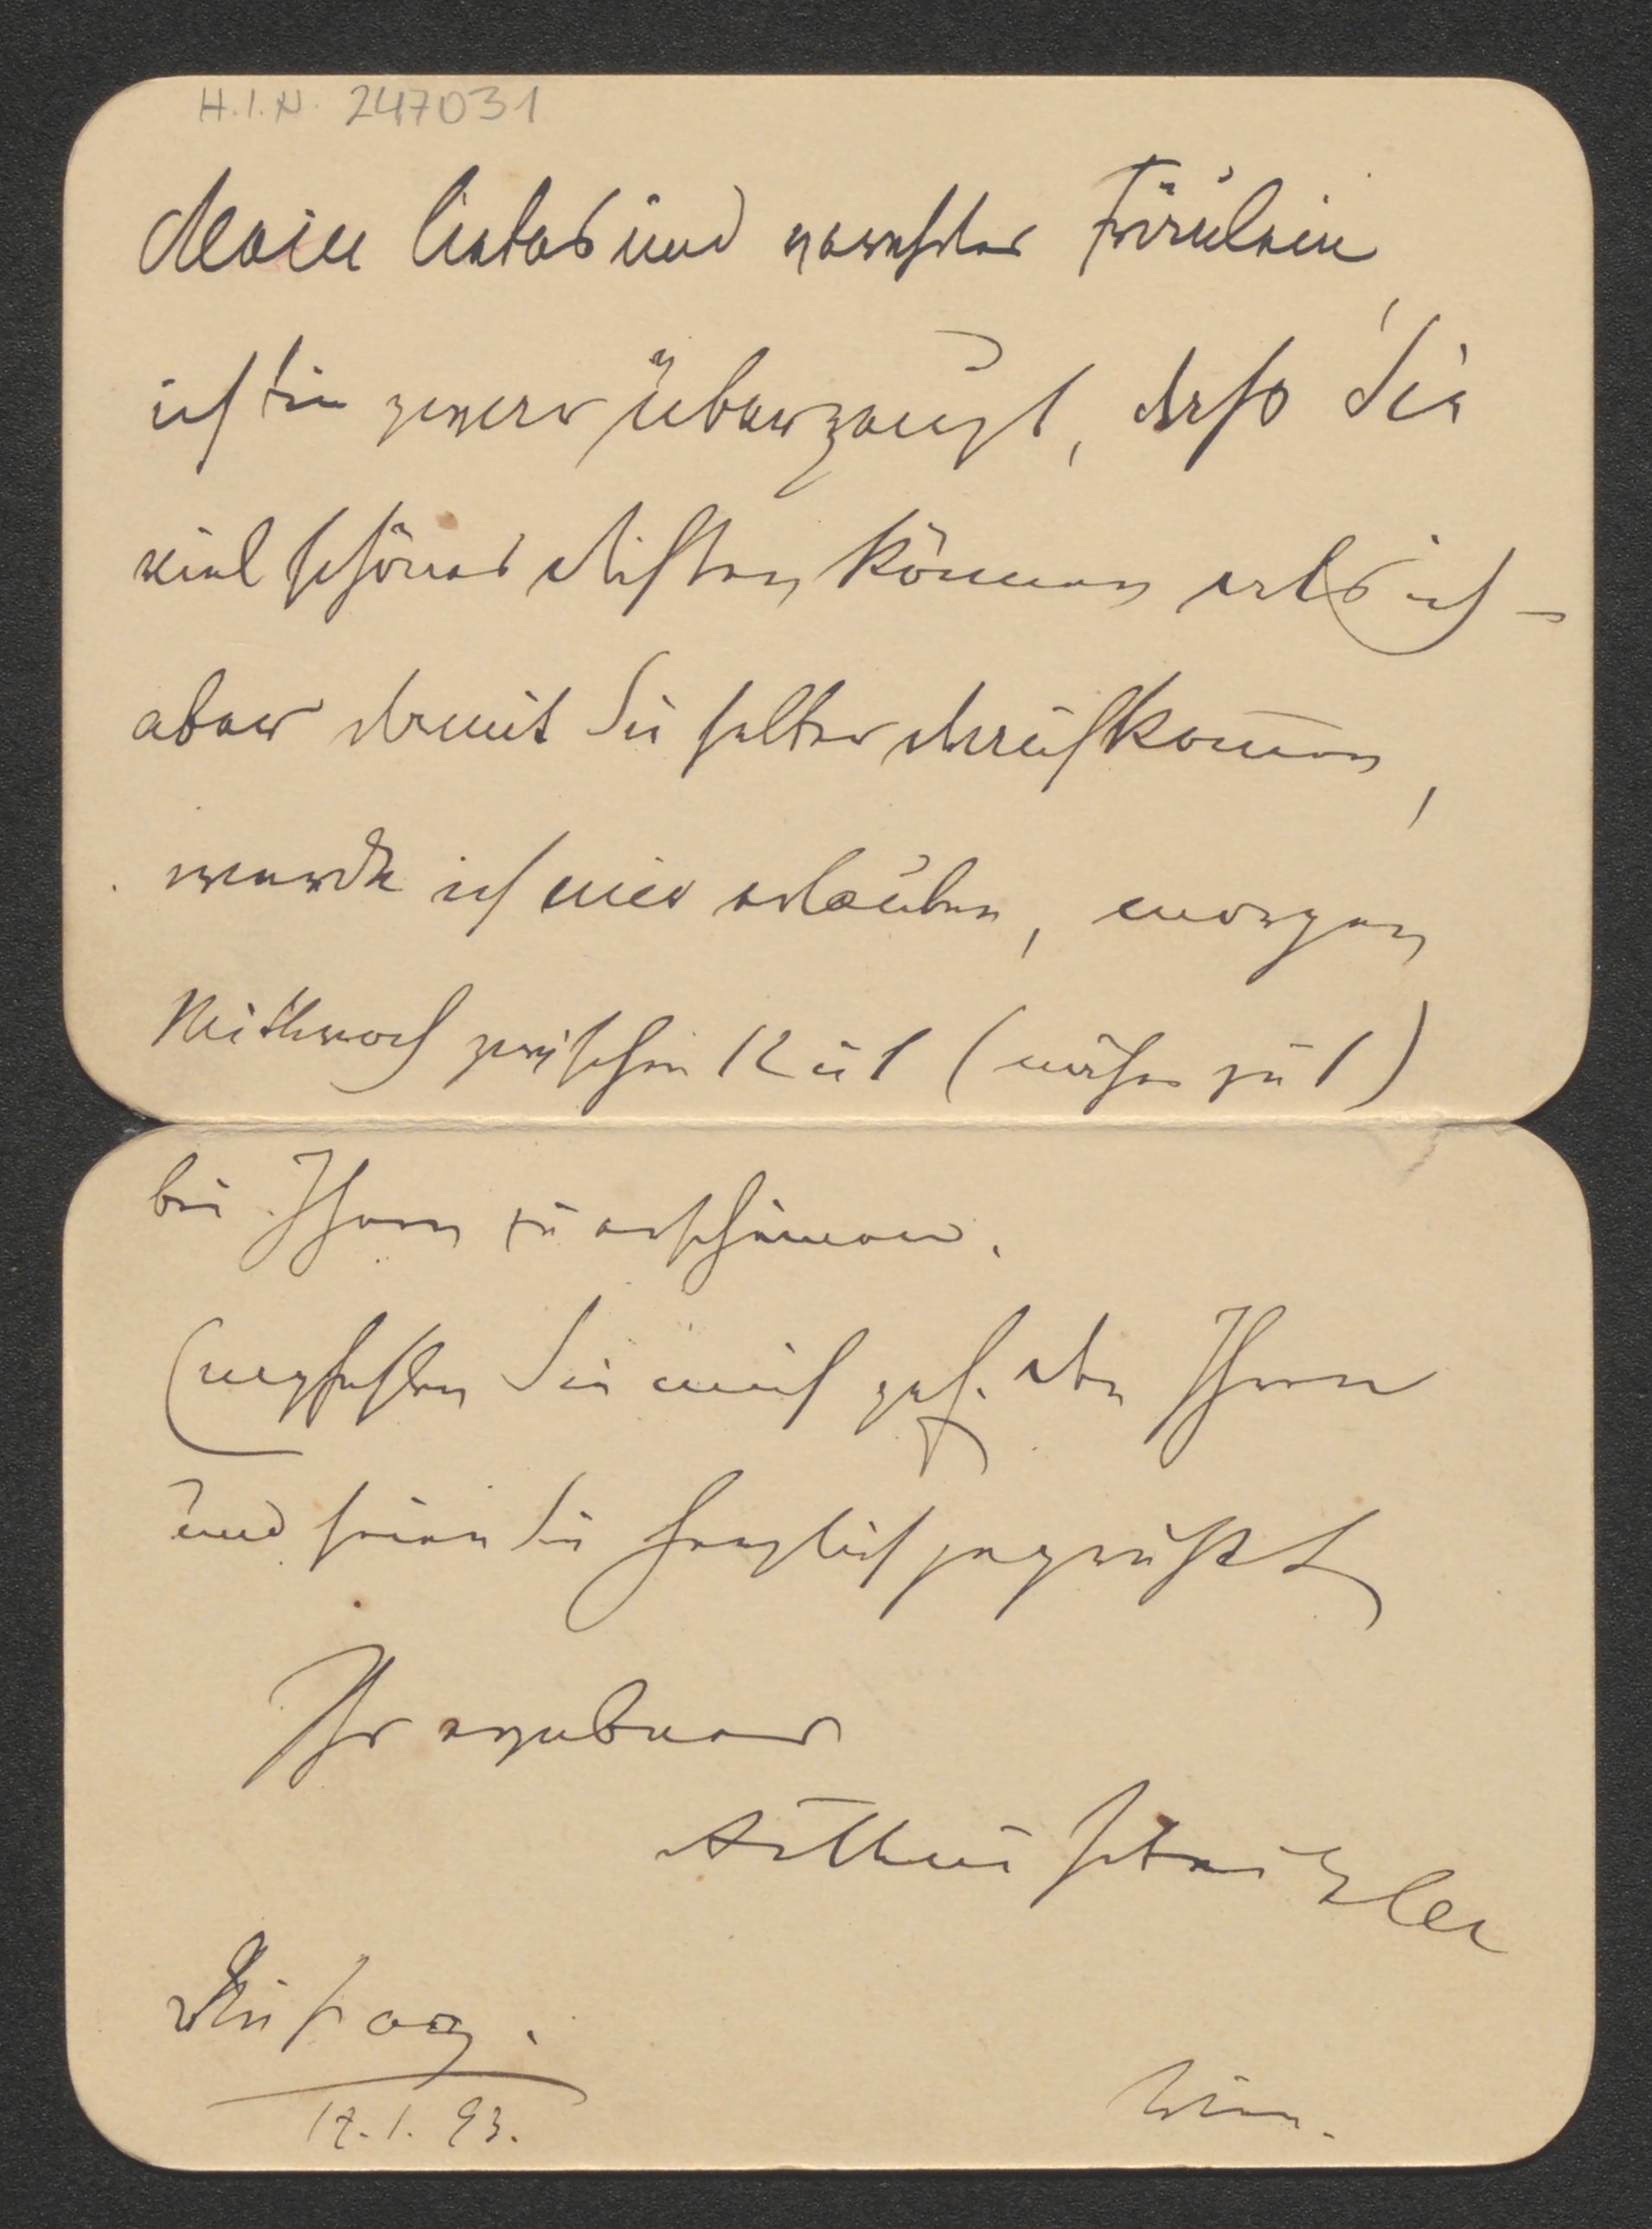 H.I.N. 247031
Mein liebes und verehrtes Fräulein,
ich bin zwar überzeugt, dass Sie
viel schöner dichten können als ich –
aber damit Sie selber draufkom̄en,
werde ich mir erlauben, morgen
Mittwoch zwischen 12 u 1 (näher zu 1)
bei Ihnen zu erscheinen.
Empfehlen Sie mich gef. den Ihren
und seien Sie herzlich gegrüßt
Ihr ergebener
Arthur Schnitzler
Dinstag.
17.1.93. Wien.